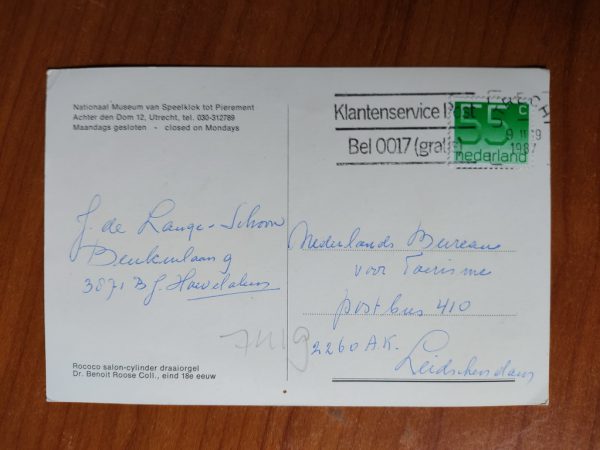 Nationaal Museum van Speelklok tot Pierement
Achter den Dom 12, Utrecht, tel. 030-312789
Maandags gesloten - closed on Mondays
Klantenservice
Bel 0017
55 c
nederland
1987
J. de Lange-Schoon
Beukenlaan 9
3871 B J. Hoevelaken
Nederlands Bureau
voor Toerisme
postbus 410
2260 A.K.
Leidschendam
Rococo salon-cylinder draaiorgel
Dr. Benoit Roose Coll., eind 18e eeuw